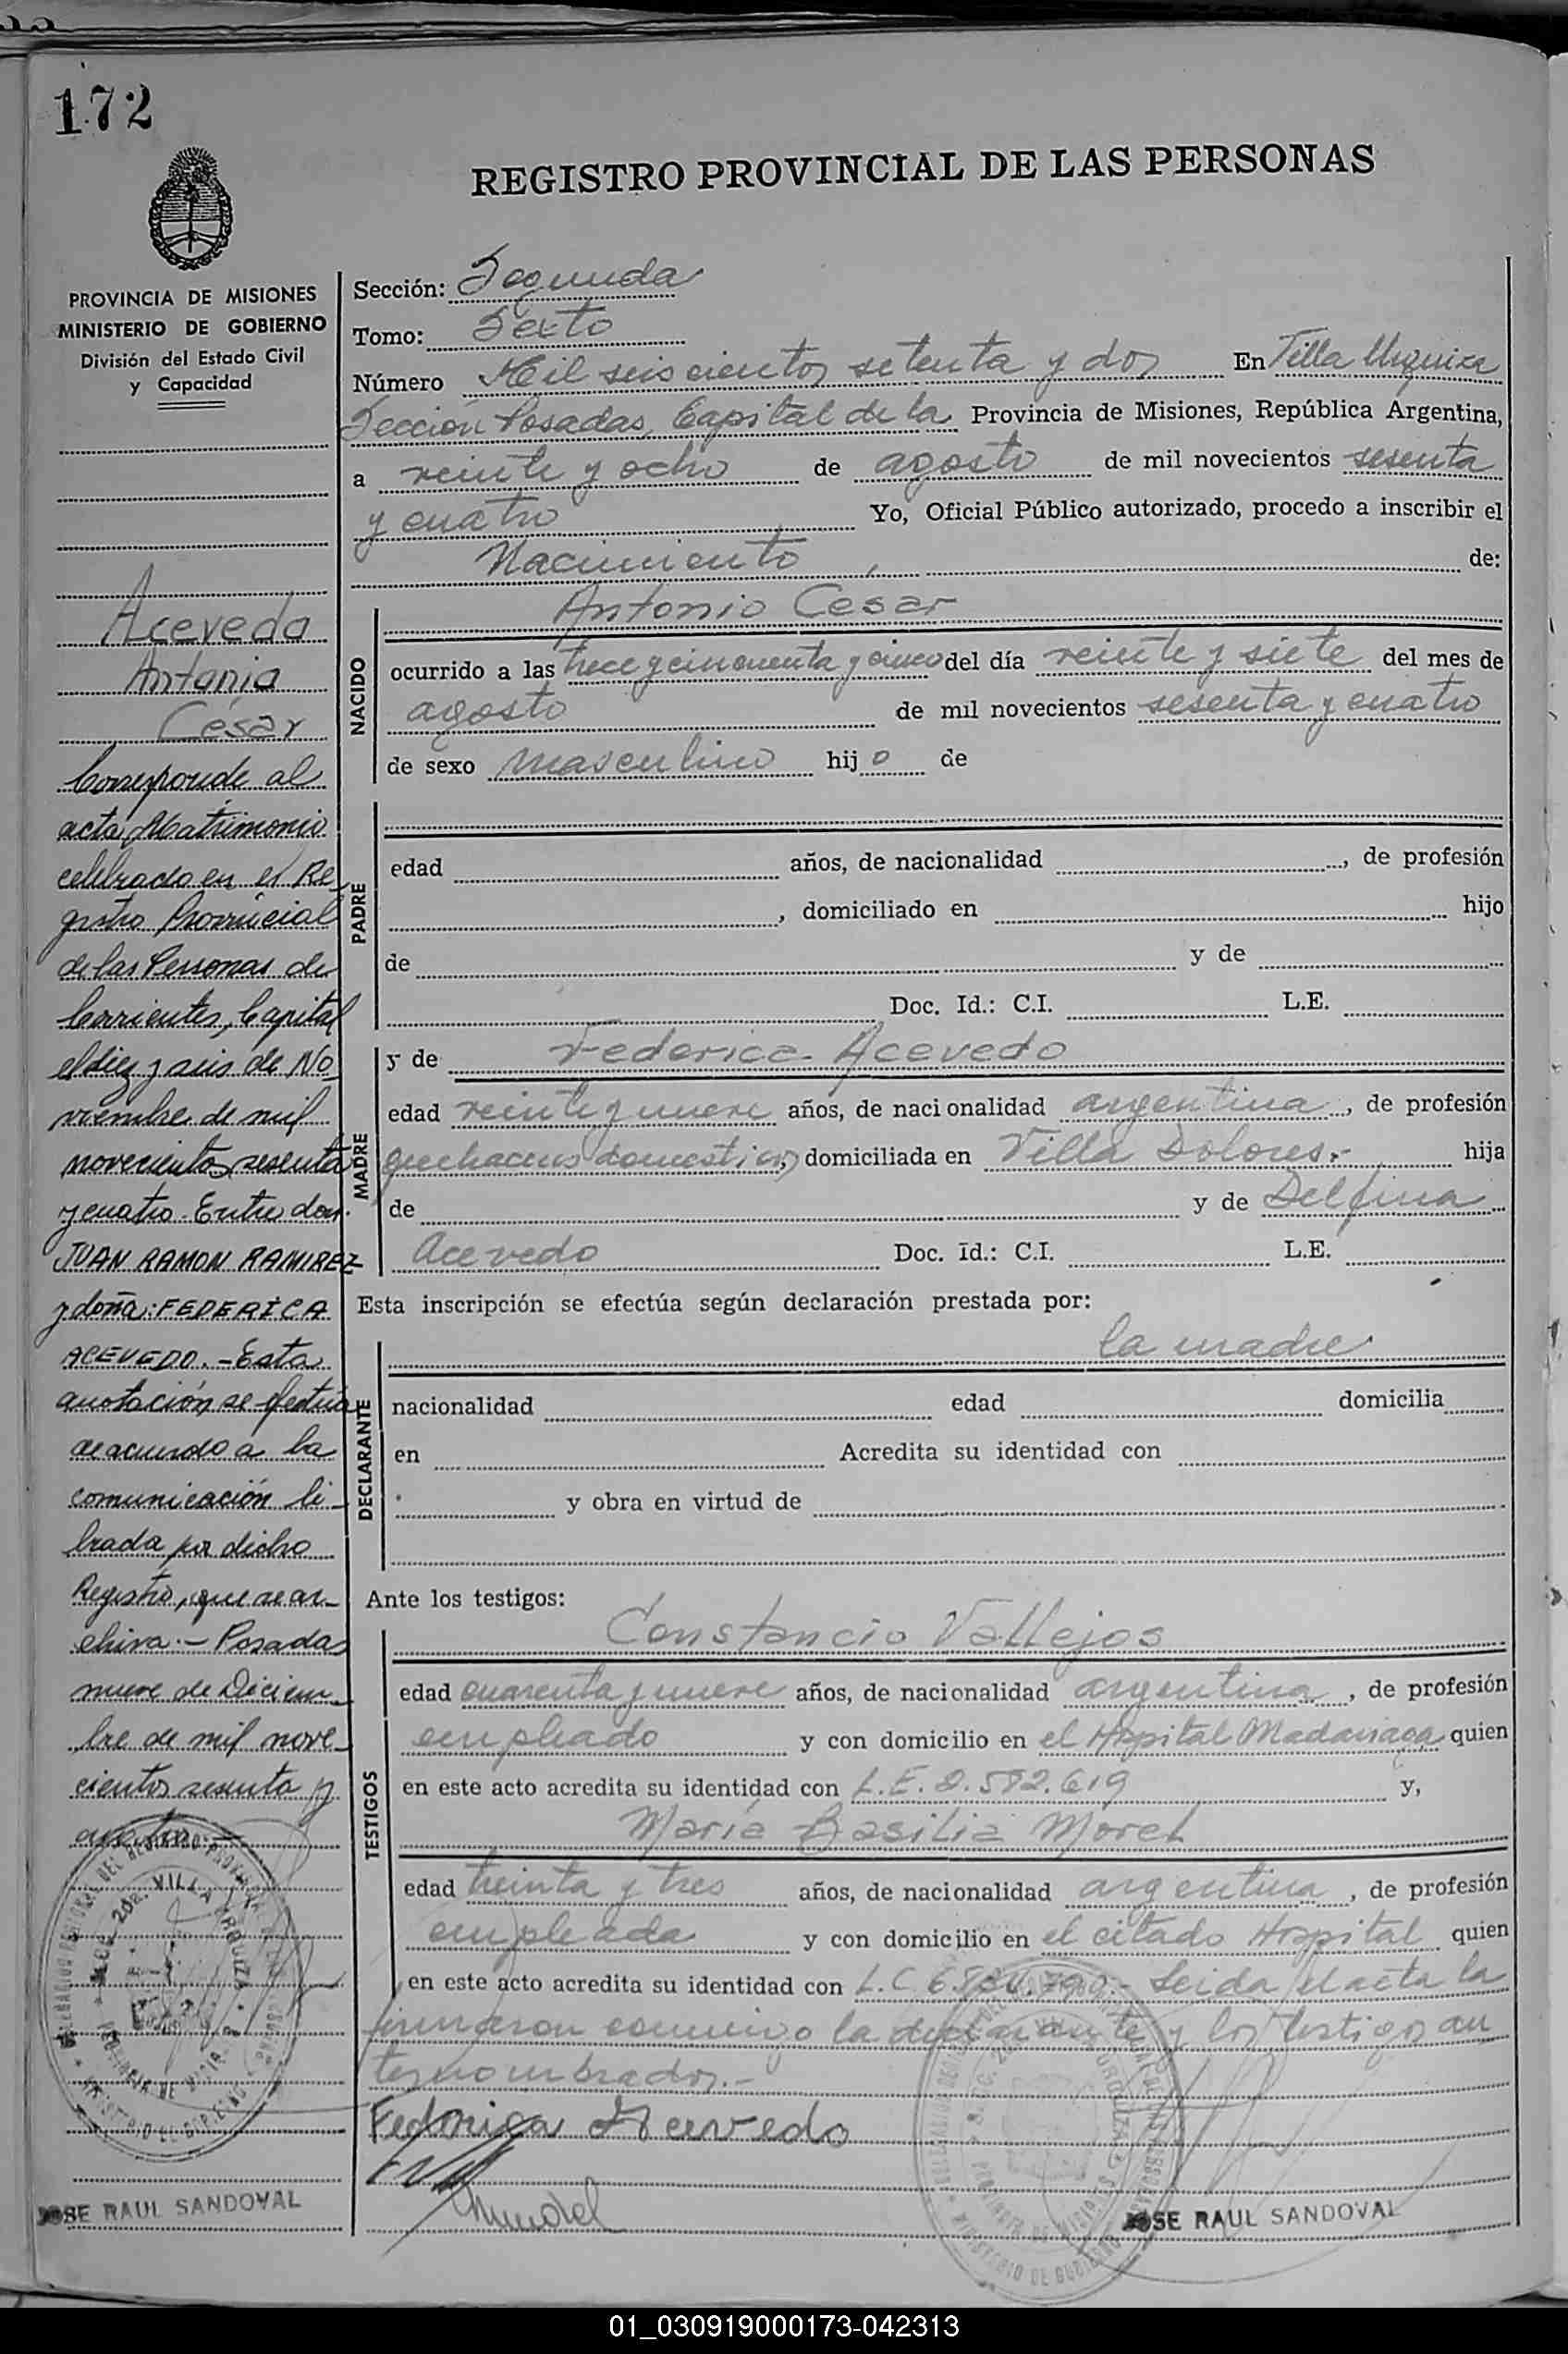 172
REGISTRO PROVINCIAL DE LAS PERSONAS
PROVINCIA DE MISIONES
MINISTERIO DE GOBIERNO
División del Estado Civil
y Capacidad
Acevedo
Antonio
César
Corresponde al
acta Matrimonio
celebrado en el Re-
gistro Provincial
de las Personas de
Corrientes, Capital
el diez y seis de No-
viembre de mil
novecientos sesenta
y cuatro. Entre don:
JUAN RAMON RAMIREZ
y doña: FEDERICA
ACEVEDO. - Esta
anotación se efectúa
de acuerdo a la
comunicación li-
brada por dicho
Registro, que se ar-
chiva. - Posadas
nueve de Diciem-
bre de mil nove-
cientos sesenta y
cuatro. -
JOSE RAUL SANDOVAL
Sección: Segunda
Tomo: Sexto
Número Mil seiscientos setenta y dos En Villa Urquiza
Sección Posadas, Capital de la Provincia de Misiones, República Argentina,
a veinte y ocho de agosto de mil novecientos sesenta
y cuatro Yo, Oficial Público autorizado, procedo a inscribir el
Nacimiento, de:
NACIDO
Antonio Cesar
ocurrido a las trece y cincuenta y cinco del día veinte y siete del mes de
agosto de mil novecientos sesenta y cuatro
de sexo masculino hijo de
PADRE
edad años, de nacionalidad , de profesión
, domiciliado en hijo
de y de
Doc. Id.: C.I. L.E.
MADRE
y de Federica Acevedo
edad veinte y nueve años, de nacionalidad argentina, de profesión
quehaceres domesticos, domiciliada en Villa Dolores.- hija
de y de Delfina
Acevedo Doc. Id.: C.I. L.E.
Esta inscripción se efectúa según declaración prestada por:
DECLARANTE
la madre
nacionalidad edad domicilia
en Acredita su identidad con
y obra en virtud de
Ante los testigos:
TESTIGOS
Constancio Vallejos
edad cuarenta y nueve años, de nacionalidad argentina, de profesión
empleado y con domicilio en el Hospital Madariaga quien
en este acto acredita su identidad con L.E. 2.582.619 y,
María Basilia Morel
edad treinta y tres años, de nacionalidad argentina, de profesión
empleada y con domicilio en el citado Hospital quien
en este acto acredita su identidad con L.C. Leida el acta la
firmaron conmigo la declarante y los testigos an
tesnombrados.-
Federica Acevedo
JOSE RAUL SANDOVAL
01_030919000173-042313